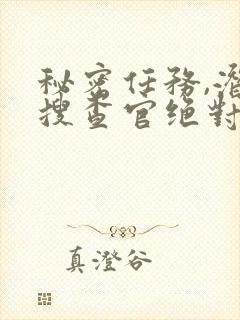 秘密任務,潛
搜查官绝對
真澄谷